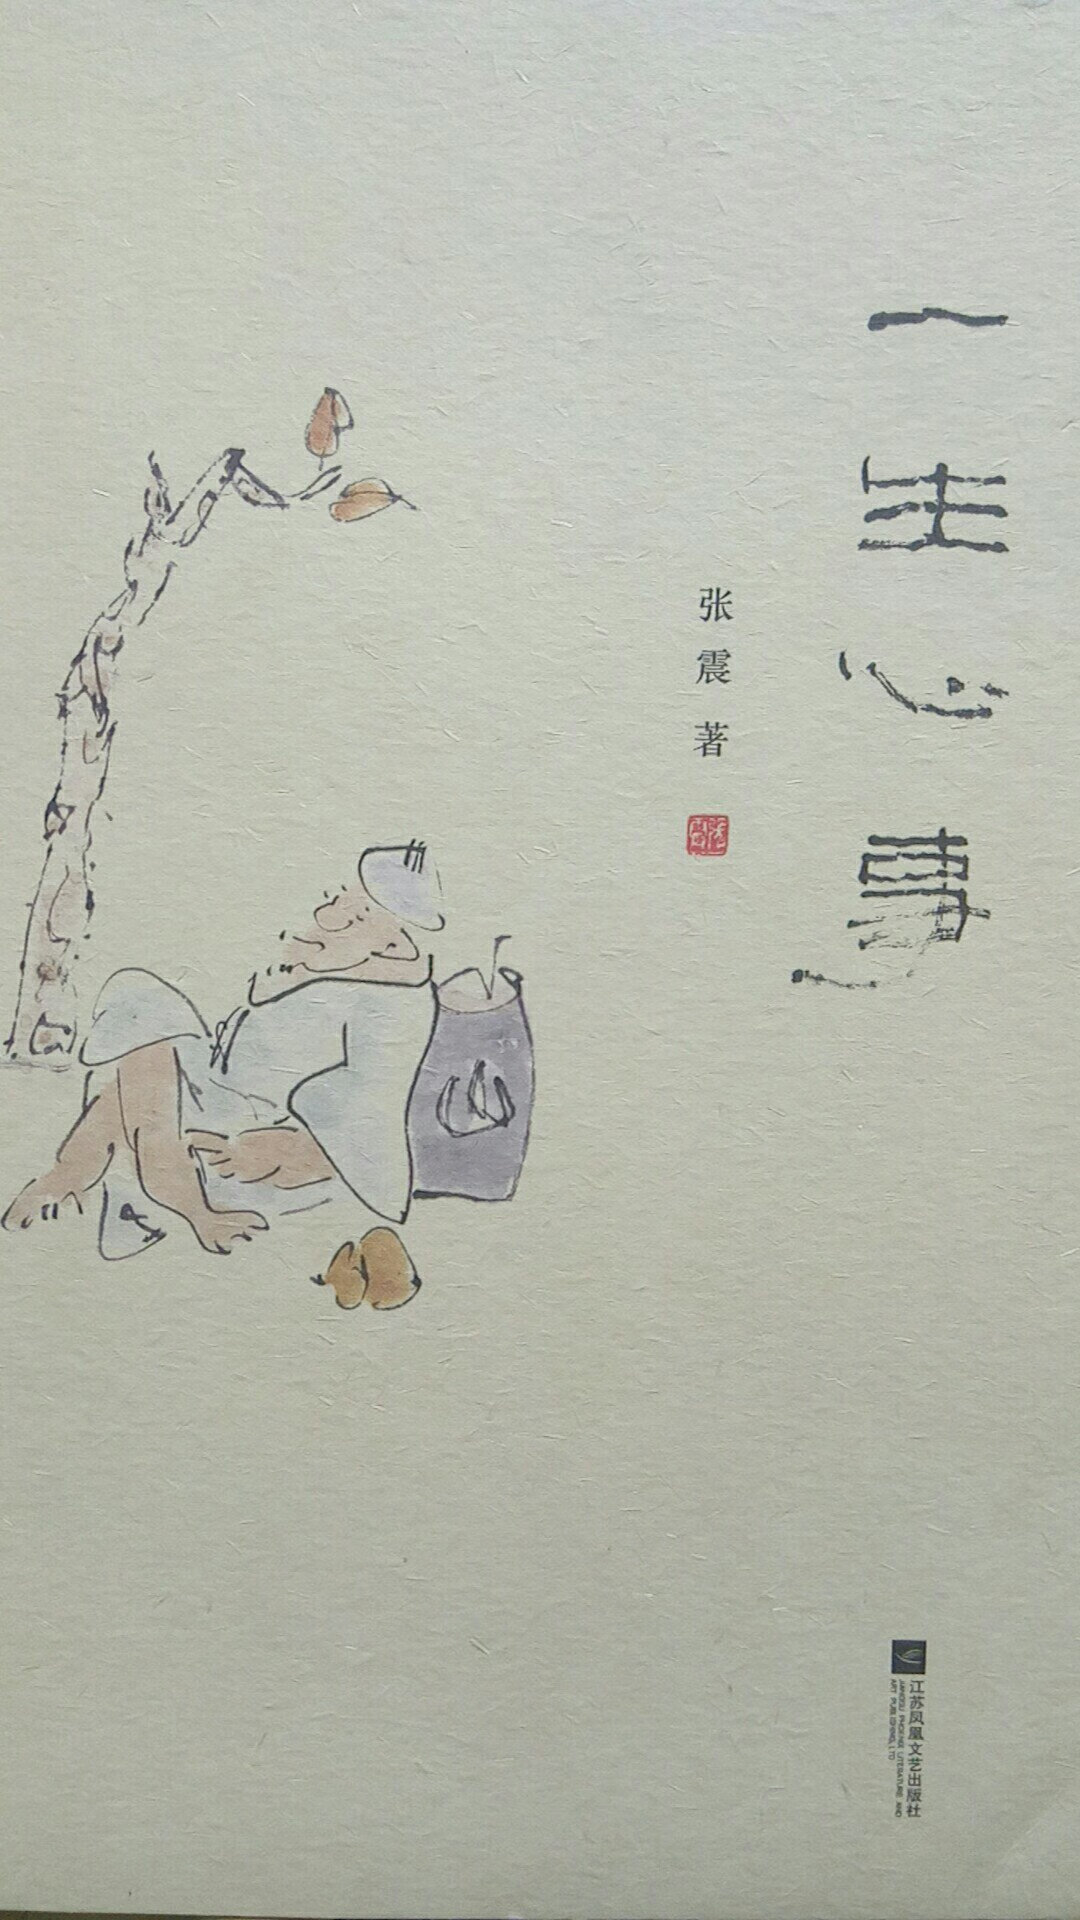 一生心事
张震 著
山
江苏凤凰文艺出版社
JIANGSU PHOENIX LITERATURE AND
ART PUBLISHING, LTD